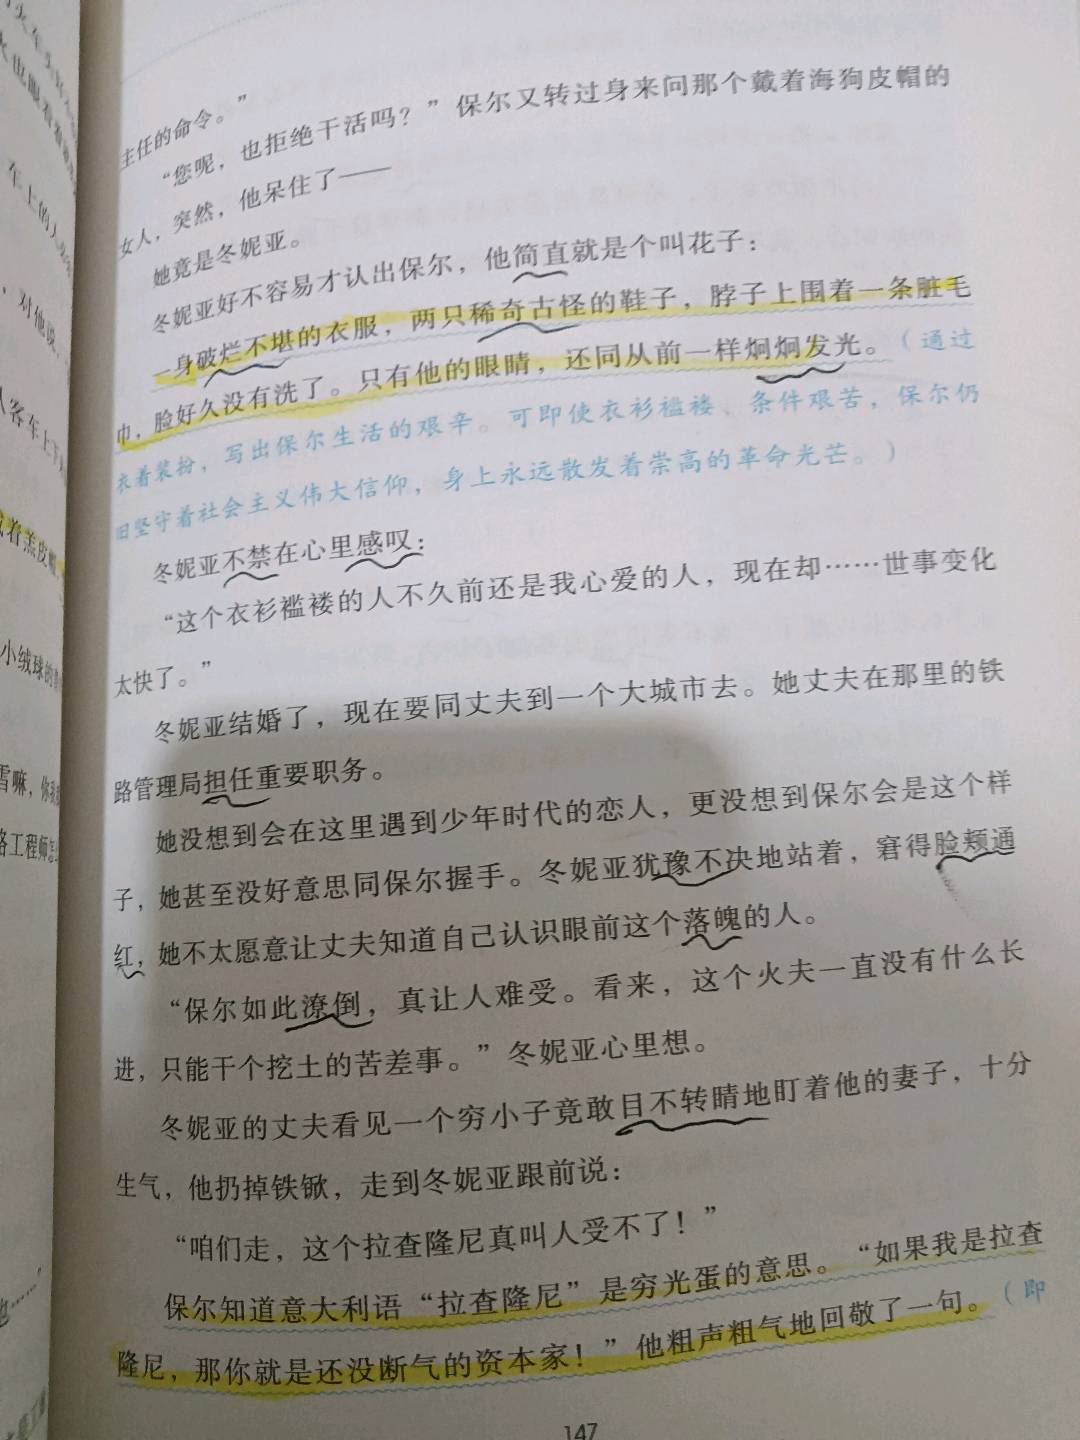 主任的命令。”
“您呢，也拒绝干活吗？”保尔又转过身来问那个戴着海狗皮帽的
女人，突然，他呆住了——
她竟是冬妮亚。
冬妮亚好不容易才认出保尔，他简直就是个叫花子：
一身破烂不堪的衣服，两只稀奇古怪的鞋子，脖子上围着一条脏毛
巾，脸好久没有洗了。只有他的眼睛，还同从前一样炯炯发光。（通过
衣着装扮，写出保尔生活的艰辛。可即使衣衫褴褛、条件艰苦，保尔仍
旧坚守着社会主义伟大信仰，身上永远散发着崇高的革命光芒。）
冬妮亚不禁在心里感叹：
“这个衣衫褴褛的人不久前还是我心爱的人，现在却……世事变化
太快了。”
冬妮亚结婚了，现在要同丈夫到一个大城市去。她丈夫在那里的铁
路管理局担任重要职务。
她没想到会在这里遇到少年时代的恋人，更没想到保尔会是这个样
子，她甚至没好意思同保尔握手。冬妮亚犹豫不决地站着，窘得脸颊通
红，她不太愿意让丈夫知道自己认识眼前这个落魄的人。
“保尔如此潦倒，真让人难受。看来，这个火夫一直没有什么长
进，只能干个挖土的苦差事。”冬妮亚心里想。
冬妮亚的丈夫看见一个穷小子竟敢目不转睛地盯着他的妻子，十分
生气，他扔掉铁锨，走到冬妮亚跟前说：
“咱们走，这个拉查隆尼真叫人受不了！”
保尔知道意大利语“拉查隆尼”是穷光蛋的意思。“如果我是拉查
隆尼，那你就是还没断气的资本家！”他粗声粗气地回敬了一句。（即
147